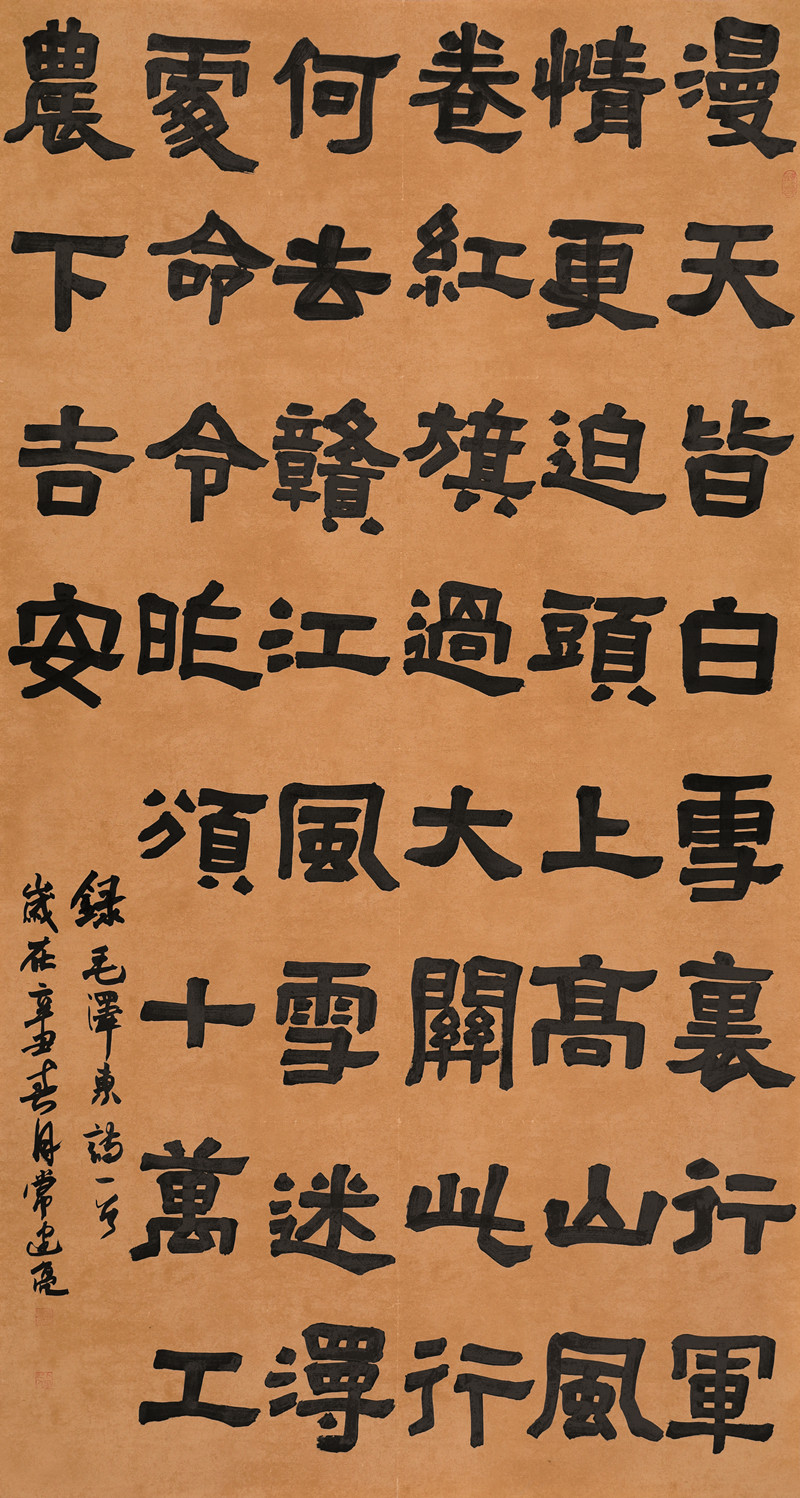 漫天皆白雪裏行軍
情更迫頭上髙山風
卷紅旗過大關此行
何去贛江風雪迷澤
處命令昨頒十萬工
農下吉安
録毛澤東詩一首
歲在辛丑春月常建亮